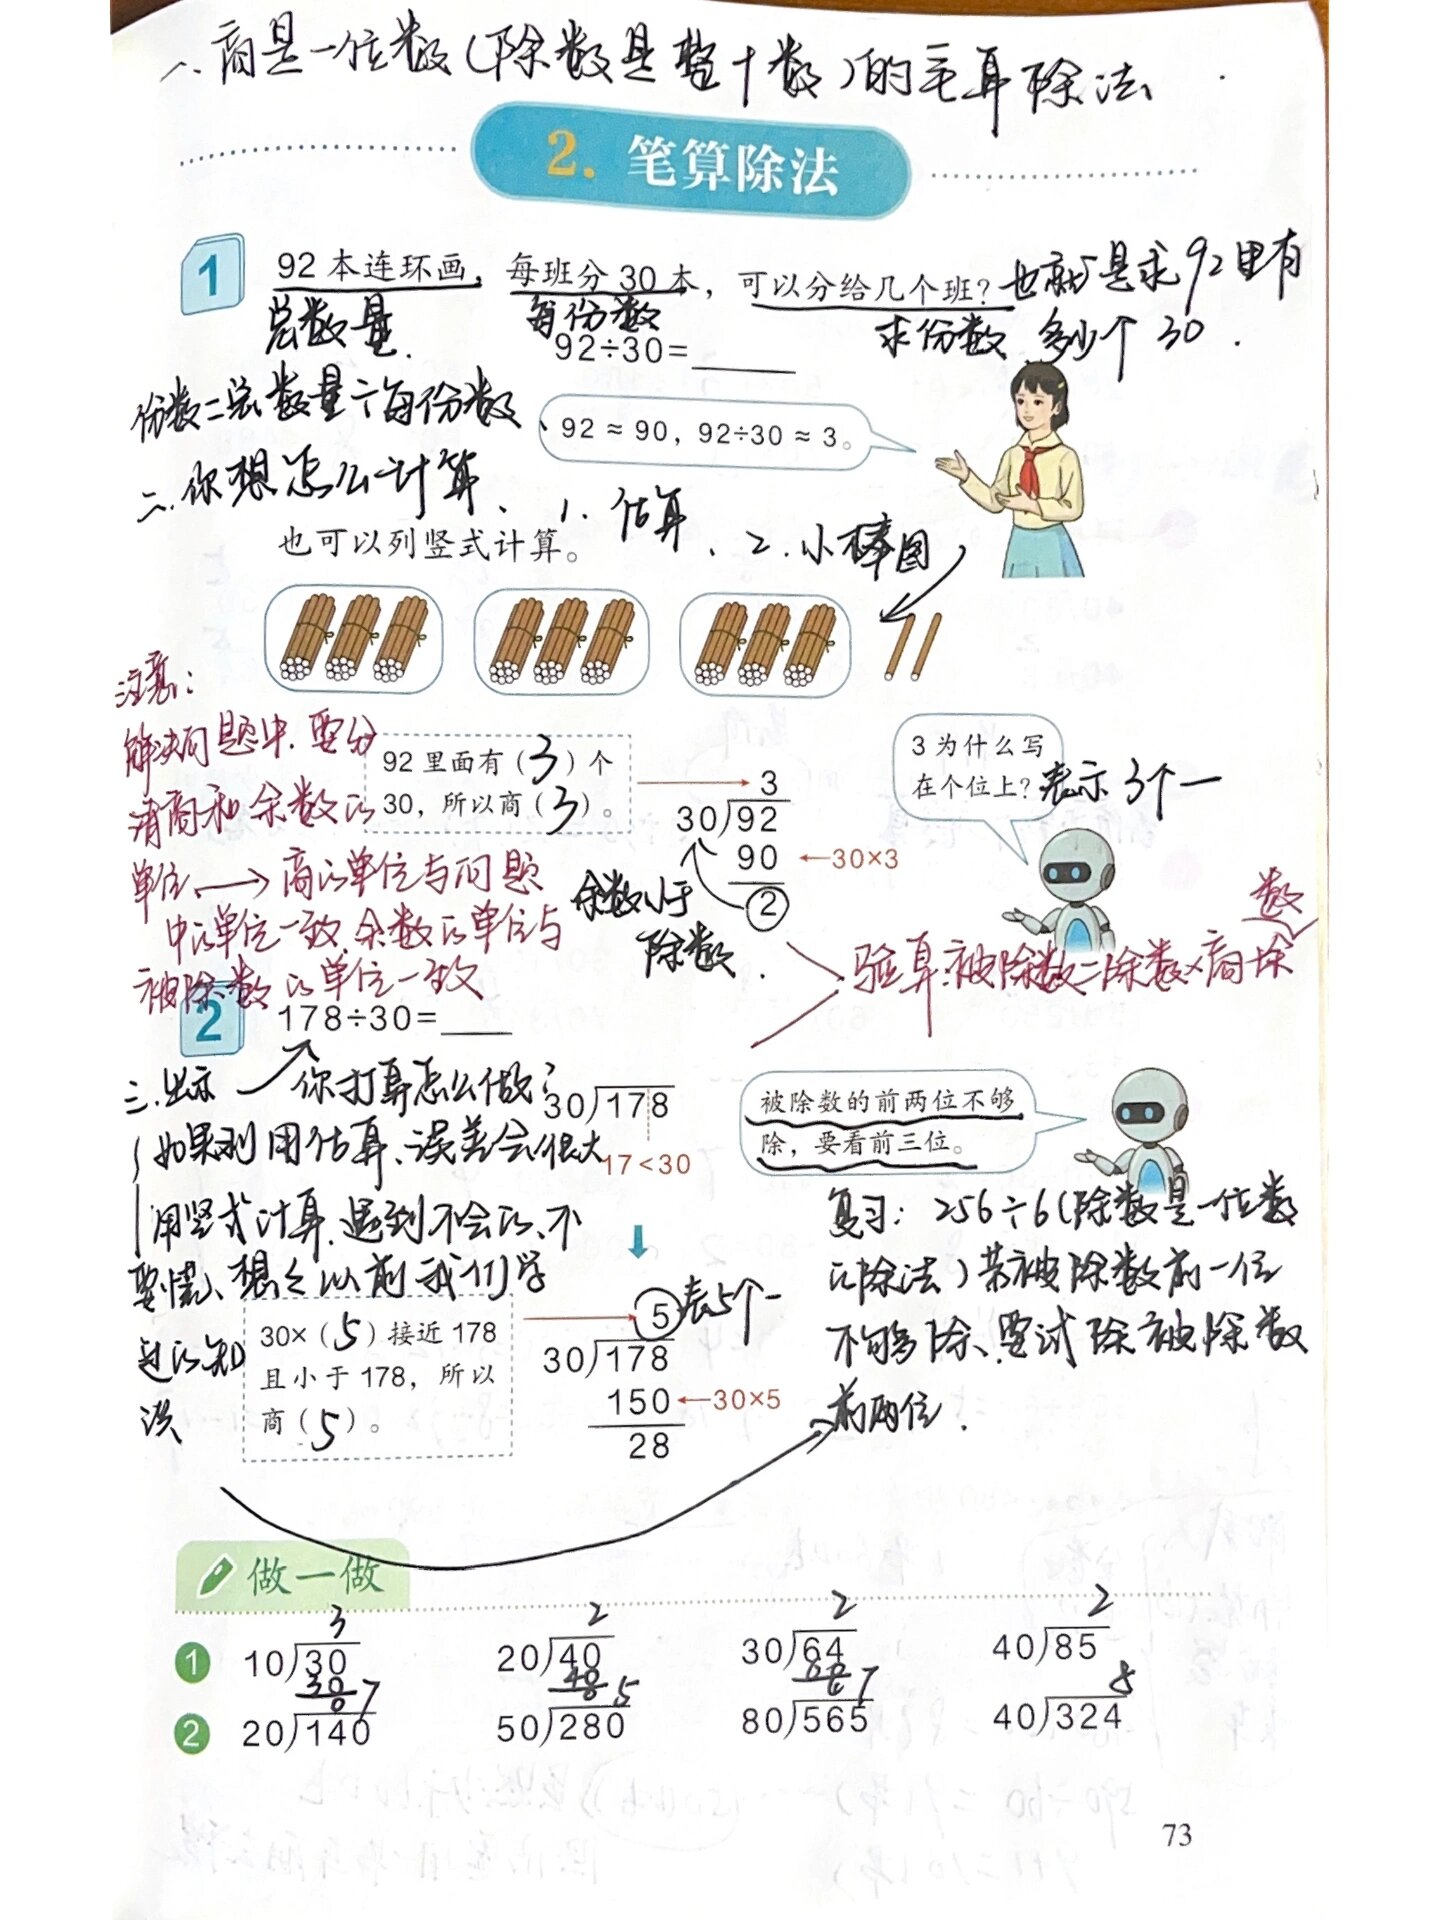 一、商是一位数(除数是整十数)的笔算除法
2. 笔算除法
1
92本连环画，每班分30本，可以分给几个班？也就是求92里有
总数量 每份数 求份数 多少个30.
92÷30=
份数=总数量÷每份数
92≈90，92÷30≈3。
二.你想怎么计算、1.估算、2.小棒图
也可以列竖式计算。
注意：
解决问题中.要分
清商和余数的
单位→商的单位与问题
中的单位一致.余数的单位与
被除数的单位一致
92里面有(3)个
30，所以商(3)。
3
30)92
90 ←30×3
2
余数小于
除数.
3为什么写
在个位上？表示3个一
数
验算:被除数=除数×商+余
2
178÷30=
三.出示 你打算怎么做?
如果利用估算、误差会很大
用竖式计算.遇到不会的、不
要慌、想想以前我们学
过的知
识
30)178
17<30
被除数的前两位不够
除，要看前三位。
30×(5)接近178
且小于178，所以
商(5)。
5 表5个一
30)178
150 ←30×5
28
复习：256÷6(除数是一位数
的除法)若被除数前一位
不够除、要试除被除数
前两位.
做一做
3 2 2 2
1 10)30 20)40 30)64 40)85
30 40 60
0 0 6
7 5 7 8
2 20)140 50)280 80)565 40)324
73